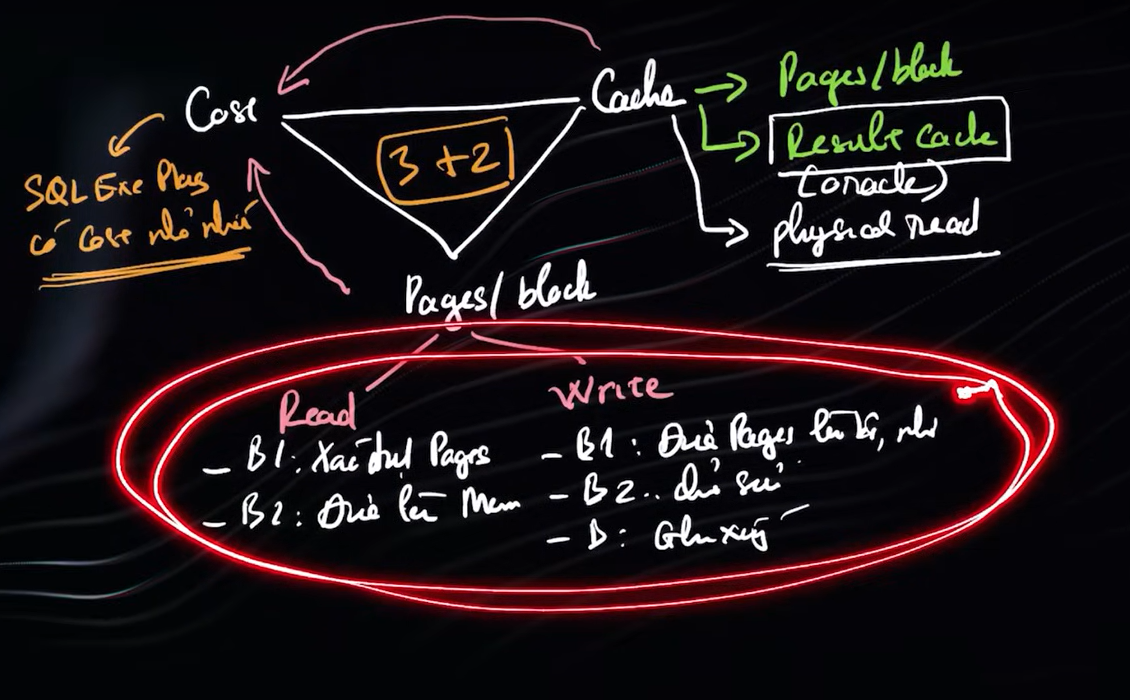 Cost
Cache
Pages/block
Result Cache
(oracle)
physical read
3 + 2
SQL Exe Plan
có Cost nhỏ nhất
Pages/block
Read
- B1: Xác định Pages
- B2: Đưa lên Mem
Write
- B1: Đưa Pages lên bộ nhớ
- B2: chỉnh sửa
- B: Ghi xuống